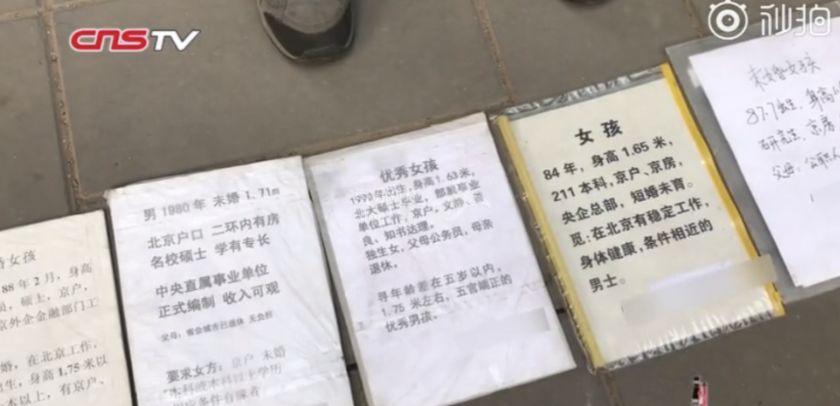 CNSTV
秒拍
婚女孩
88年2月，身高
员，硕士，京户，
京外企金融部门工
婚，在北京工作，
出生，身高1.75米以
本以上，有京户、
男 1980年 未婚 1.71m
北京户口 二环内有房
名校硕士 学有专长
中央直属事业单位
正式编制 收入可观
父母：省会城市已退休 无负担
要求女方：京户 未婚
本科或本科以上学历
优秀女孩
1990年出生，身高1.63米，
北大硕士毕业，部属事业
单位工作，京户，文静、善
良、知书达理。
独生女，父母公务员，母亲
退休。
寻年龄差在五岁以内，
1.75米左右，五官端正的
优秀男孩。
女孩
84年，身高1.65米，
211本科，京户，京房，
央企总部，短婚未育。
觅：在北京有稳定工作，
身体健康，条件相近的
男士。
未婚女孩
87.7出生，身高1.
研究生，京房
父母：公职人